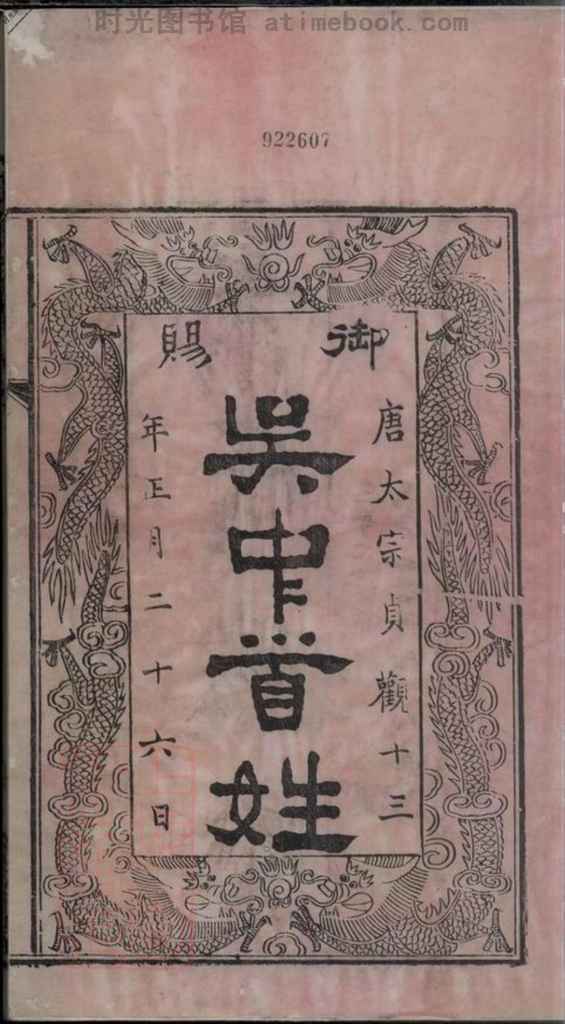 时光图书馆 atimebook.com
922607
御賜
唐太宗貞觀十三
吴中首姓
年正月二十六日